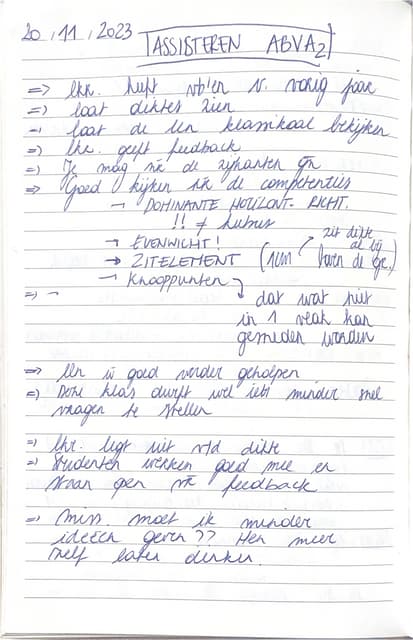 20/11/2023 ASSISTEREN ABVA2
=> lkr. heeft vb'en v. vorig jaar
=> laat diktes zien
=> laat de lln klassikaal bekijken
=> lkr. geeft feedback
=> Je mag nr de zijkanten
=> Goed kijken nr de competenties
→ DOMINANTE HORIZONT. RICHT.
!! ≠ kubus
→ EVENWICHT!
zit dikte al bij
→ ZITELEMENT (1cm boven de
→ Knooppunten
=> →
dat wat niet
in 1 vlak kan
gesneden worden
=> lln w goed verder geholpen
=> Deze klas durft wel iets minder snel
vragen te stellen
=> lkr. legt uit v/d dikte
=> Studenten werken goed mee en
staan open vr feedback
=> Miss. moet ik minder
ideeën geven?? Hen meer
zelf laten denken.